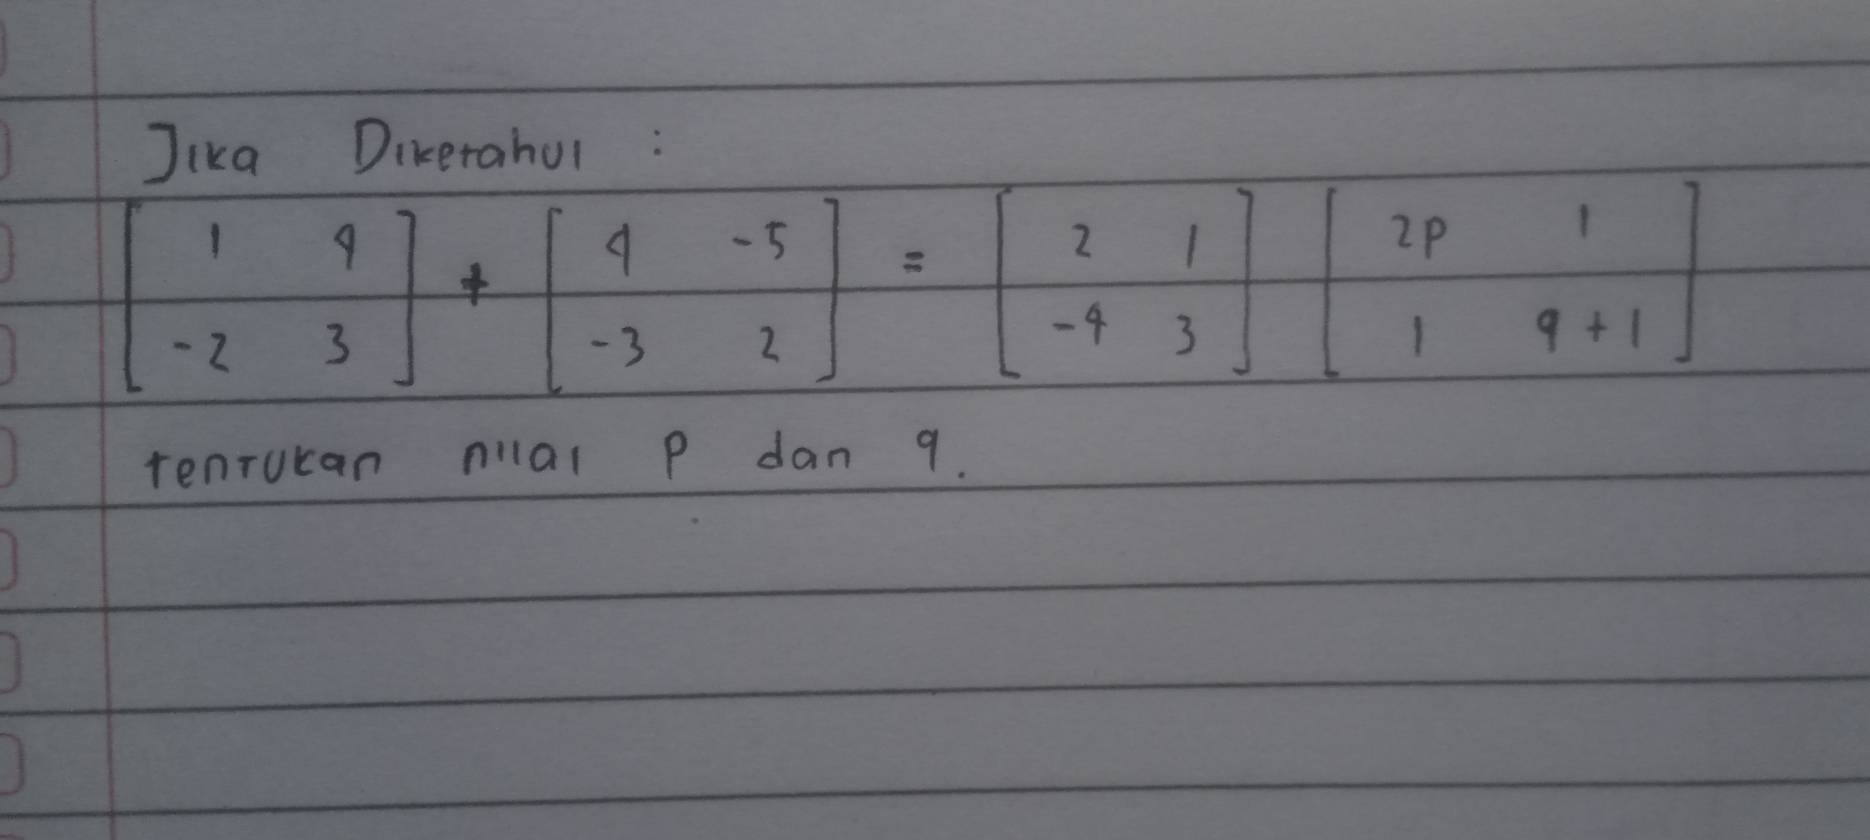 Jika Diketahui :
[ 1 4 ] + [ 4 -5 ] = [ 2 1 ] [ 2p 1 ]
[ -2 3 ] [ -3 2 ] [ -4 3 ] [ 1 q + 1 ]
tentukan nilai p dan q.